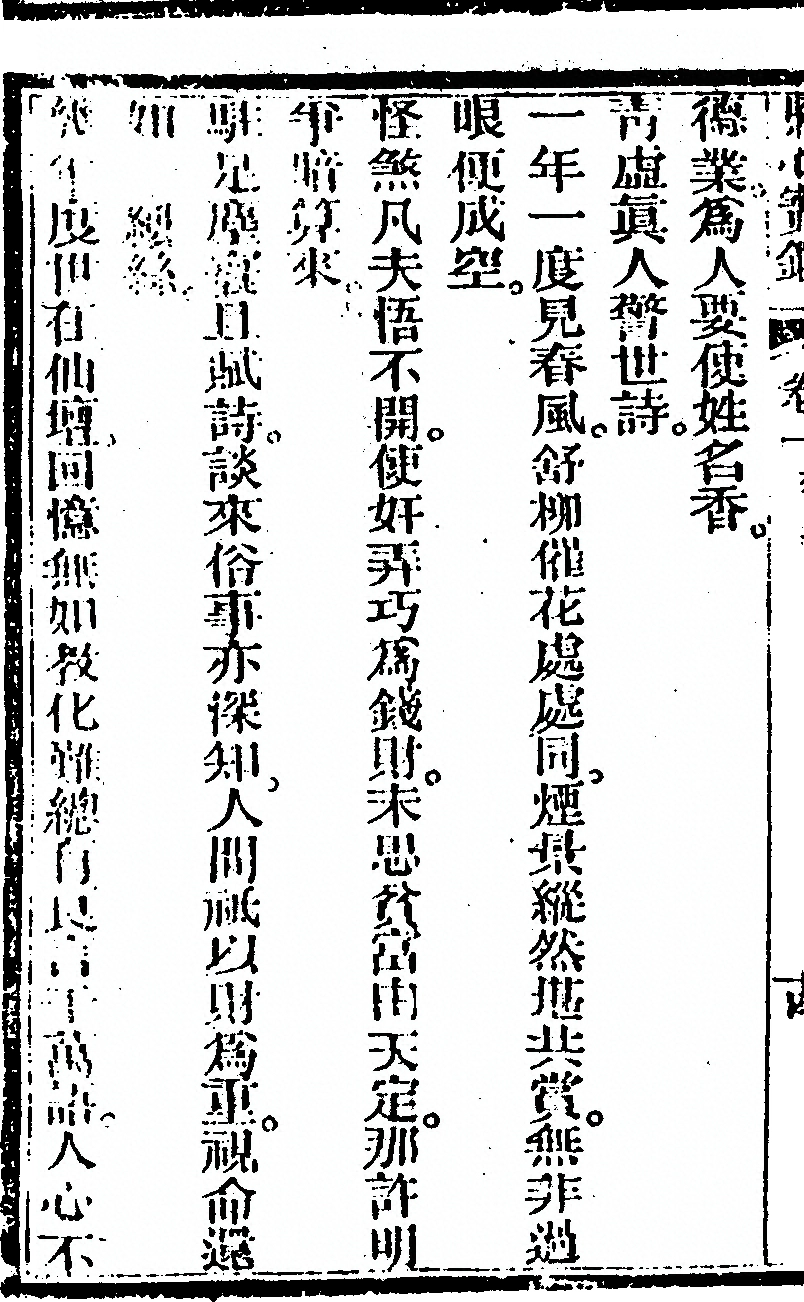 德業爲人要使姓名香。
青虛眞人警世詩。
一年一度見春風。舒柳催花處處同。煙景縱然堪共賞。無非過
眼便成空。
怪煞凡夫悟不開。使奸弄巧爲錢財。未思貧富由天定。那許明
爭暗算來。
駐足塵寰且賦詩。談來俗事亦深知。人間祇以財爲重。視命還
如 絲。
年度世在仙壇。回憶無如教化難。總有良言千萬語。人心不